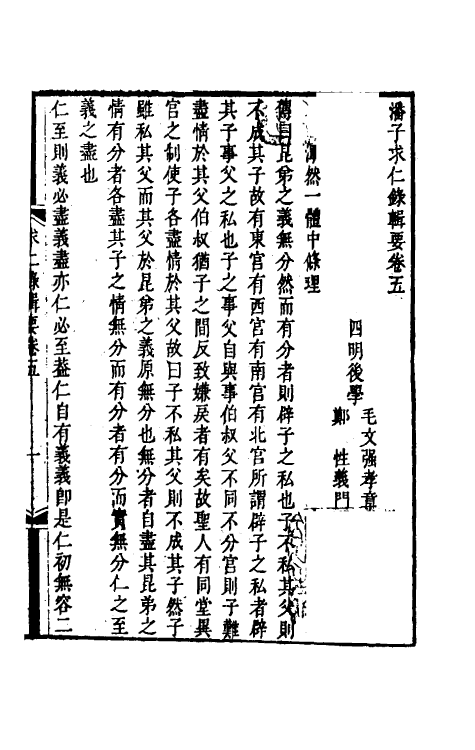 潘子求仁錄輯要卷五
四明後學
毛文强孝章
鄭　性義門
渾然一體中條理
傳曰昆弟之義無分然而有分者則辟子之私也子不私其父則
不成其子故有東宮有西宮有南宮有北宮所謂辟子之私者辟
其子事父之私也子之事父自與事伯叔父不同不分宮則子難
盡情於其父伯叔猶子之間反致嫌戾者有矣故聖人有同堂異
宮之制使子各盡情於其父故曰子不私其父則不成其子然子
雖私其父而其父於昆弟之義原無分也無分者自盡其昆弟之
情有分者各盡其子之情無分而有分者有分而實無分仁之至
義之盡也
仁至則義必盡義盡亦仁必至葢仁自有義義卽是仁初無容二
求仁錄輯要卷五
一